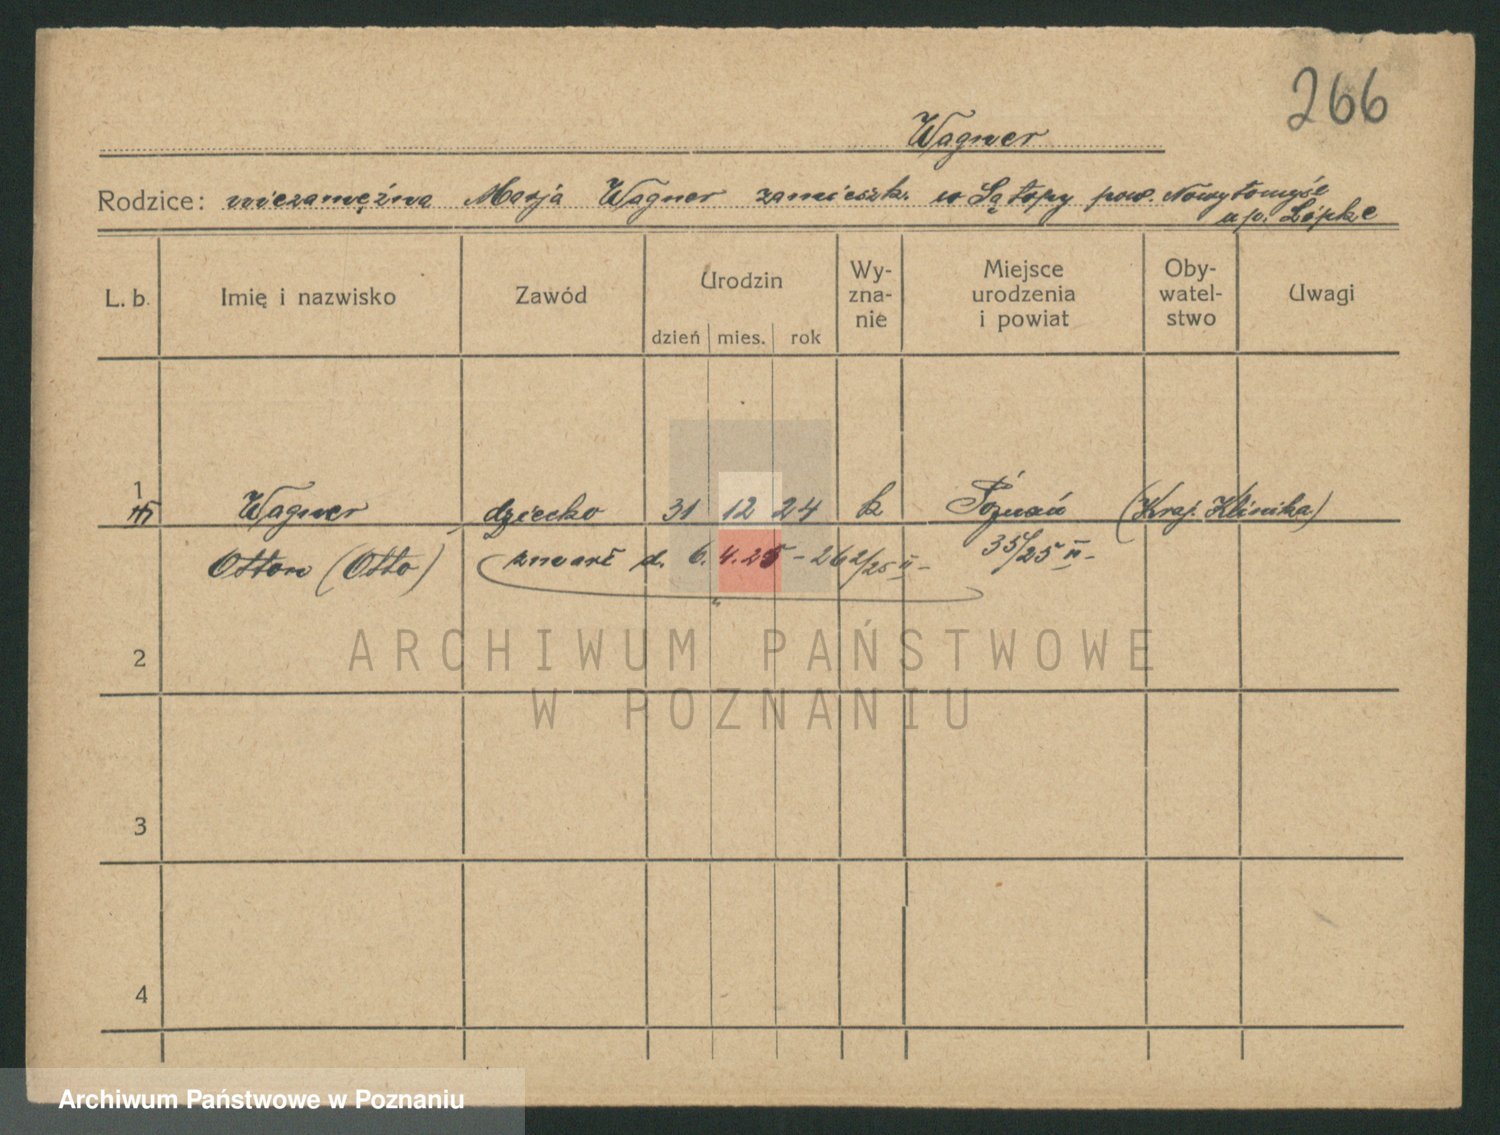 266
Wagner
Rodzice: niezamężna Marja Wagner zamieszk. w Łątopy pow. Nowytomyśl
u p. Löpke
L. b. Imię i nazwisko Zawód Urodzin dzień mies. rok Wy-zna-nie Miejsce urodzenia i powiat Oby-watel-stwo Uwagi
1 Wagner dziecko 31 12 24 k Poznań (Kraj. Klinika)
Otton (Otto) zmarł d. 6.4.25 - 262/25 II - 35/25 IV -
2
ARCHIWUM PAŃSTWOWE
W POZNANIU
3
4
Archiwum Państwowe w Poznaniu